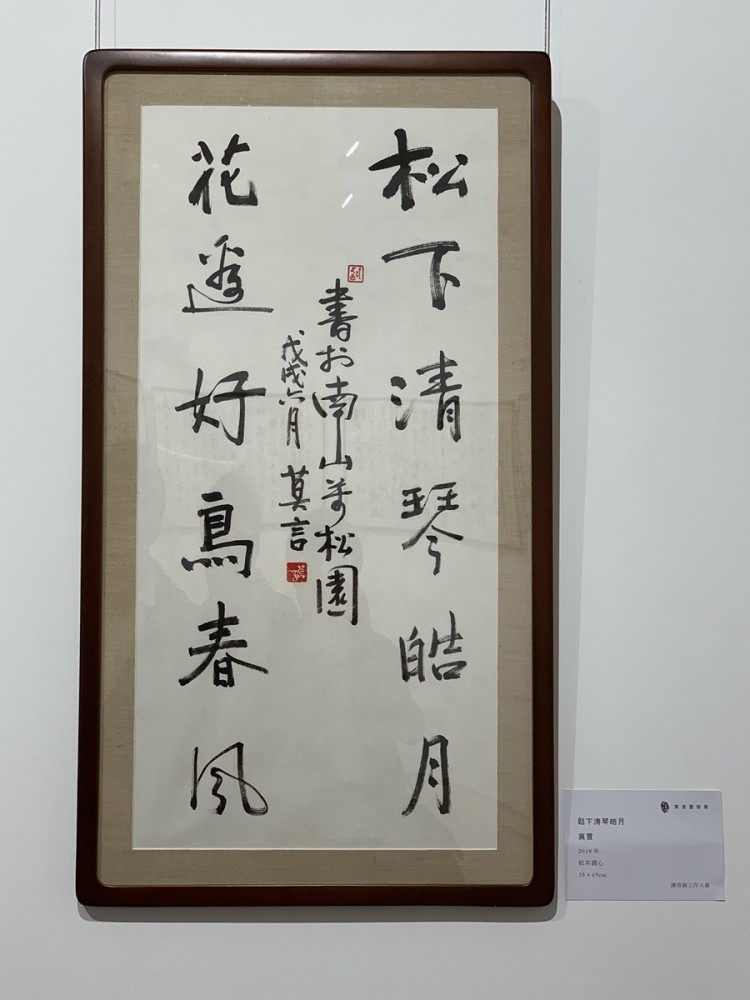 松下清琴皓月
花邊好鳥春風
書於南山萬松園
戊戌六月 莫言
鬆下清琴皓月
莫言
2018 年
紙本鏡心
35×69cm
詢工作人員